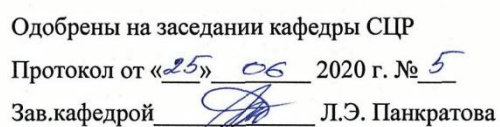 Одобрены на заседании кафедры СЦР
Протокол от «25» 06 2020 г. № 5
Зав.кафедрой Л.Э. Панкратова